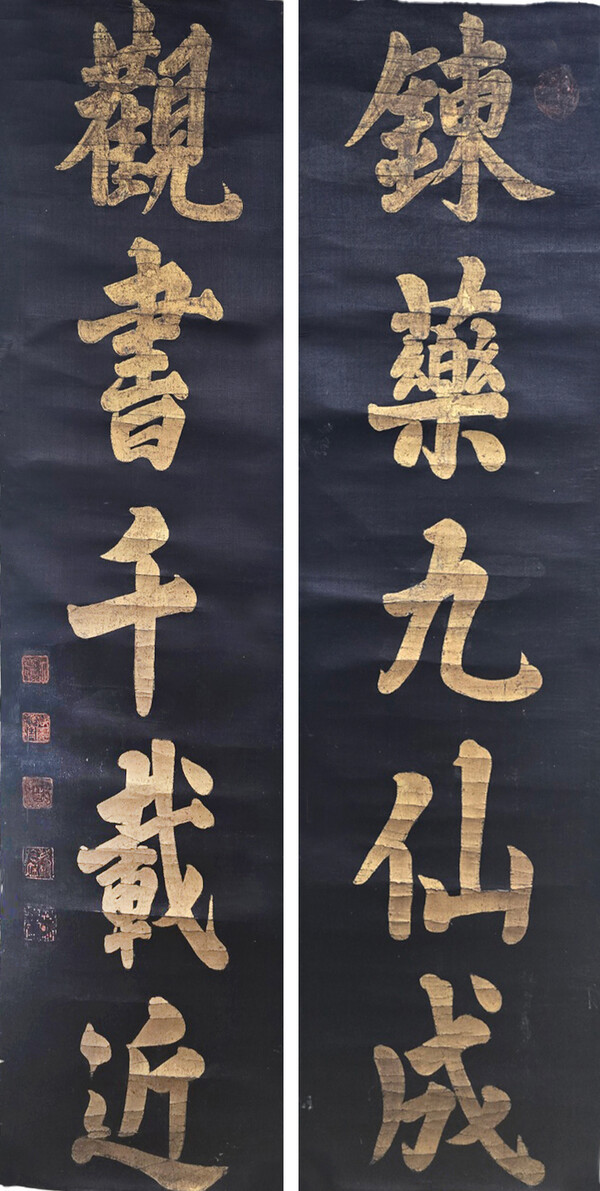 鍊藥九仙成
觀書千載近